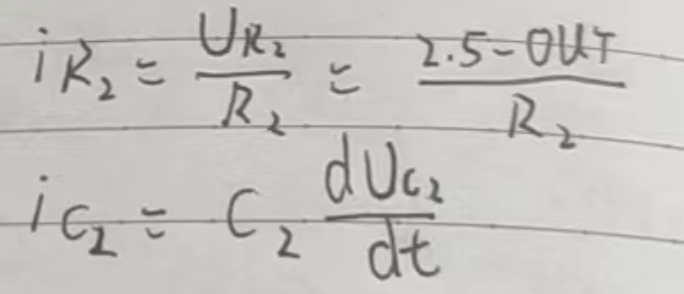 i_{R_2} = \frac{U_{R_2}}{R_2} = \frac{2.5-OUT}{R_2}
i_{C_2} = C_2 \frac{dU_{C_2}}{dt}